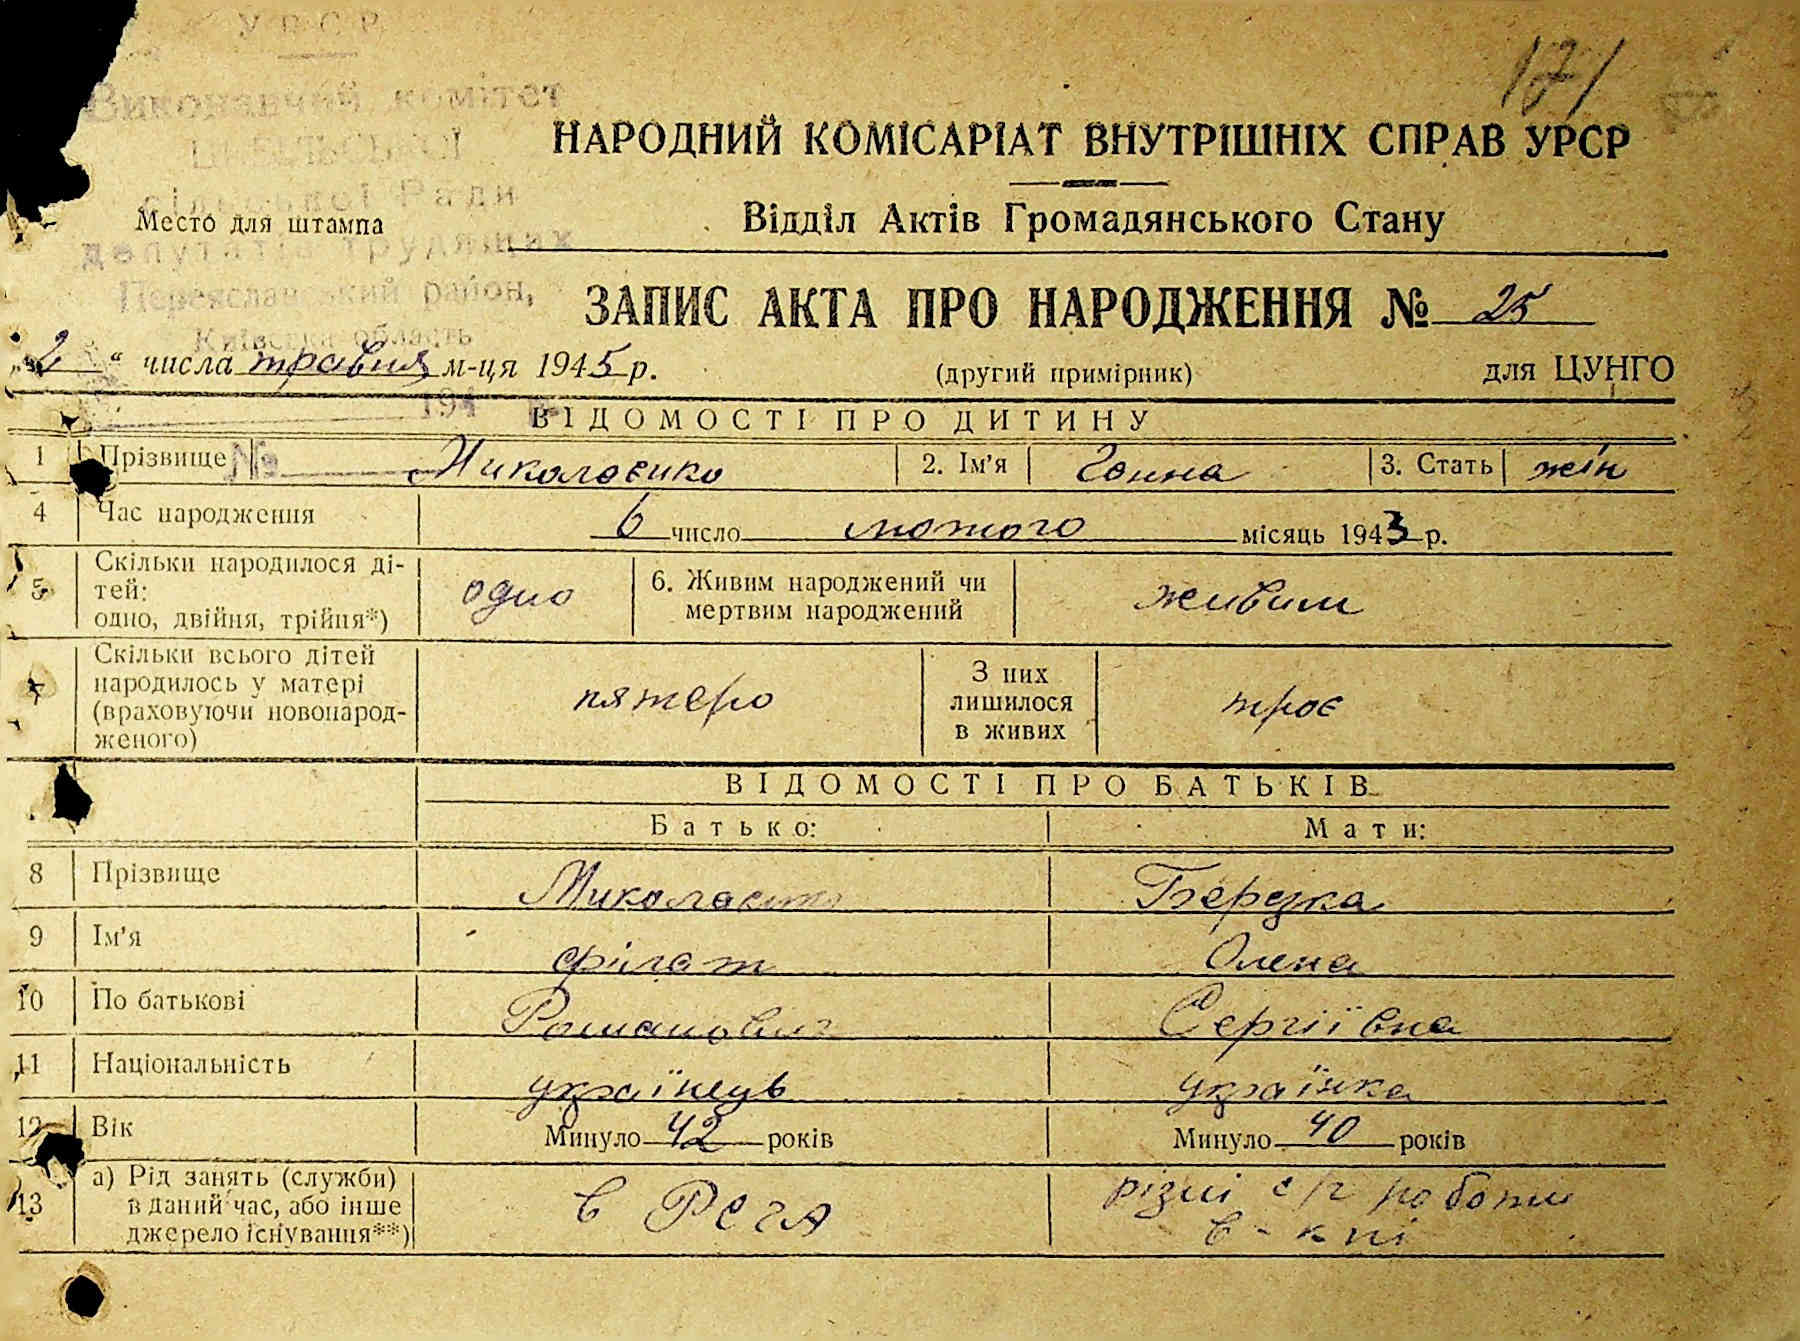 УРСР
171
Виконавчий комітет
сільської Ради
депутатів трудящих
Переяславський район,
Київська область
194
№
НАРОДНИЙ КОМІСАРІАТ ВНУТРІШНІХ СПРАВ УРСР
Место для штампа
Відділ Актів Громадянського Стану
ЗАПИС АКТА ПРО НАРОДЖЕННЯ № 25
„2“ числа травня м-ця 1945 р. (другий примірник) для ЦУНГО
ВІДОМОСТІ ПРО ДИТИНУ
1 Прізвище Миколаєнко 2. Ім'я Ганна 3. Стать жін
4 Час народження 6 число лютого місяць 1943 р.
5 Скільки народилося ді-
тей:
одно, двійня, трійня*) одно 6. Живим народжений чи
мертвим народжений живим
7 Скільки всього дітей
народилось у матері
(враховуючи новонарод-
женого) пятеро З них
лишилося
в живих троє
ВІДОМОСТІ ПРО БАТЬКІВ
Батько: Мати:
8 Прізвище Миколаєнко Березка
9 Ім'я Філат Олена
10 По батькові Романович Сергіївна
11 Національність українець українка
12 Вік Минуло 42 років Минуло 40 років
13 а) Рід занять (служби)
в даний час, або інше
джерело існування**) в РСЧА різні с/г работи
в к-пі